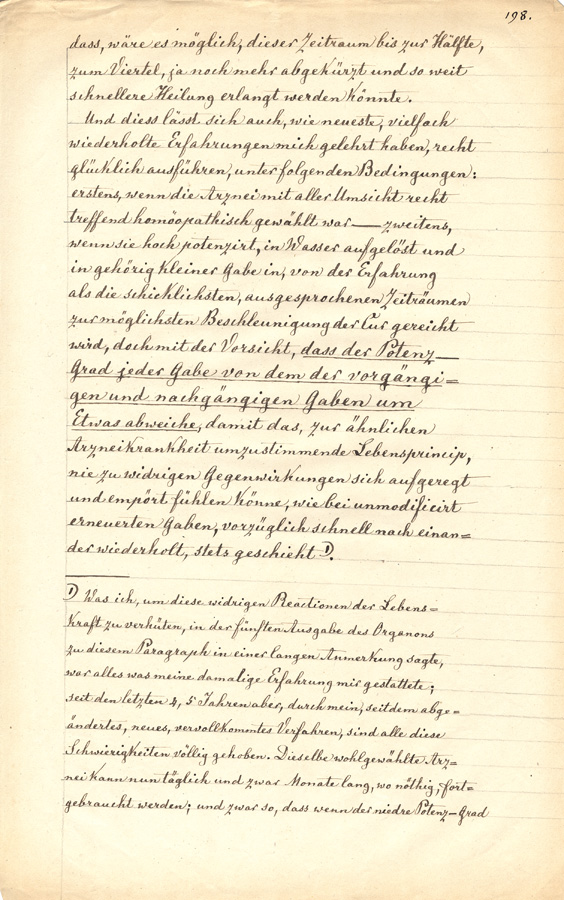 198.
dass, wäre es möglich, dieser Zeitraum bis zur Hälfte,
zum Viertel, ja noch mehr abgekürzt und so weit
schnellere Heilung erlangt werden könnte.
Und diess lässt sich auch, wie neueste, vielfach
wiederholte Erfahrungen mich gelehrt haben, recht
glücklich ausführen, unter folgenden Bedingungen:
erstens, wenn die Arznei mit aller Umsicht recht
treffend homöopathisch gewählt war — zweitens,
wenn sie hoch potenzirt, in Wasser aufgelöst und
in gehörig kleiner Gabe in, von der Erfahrung
als die schicklichsten, ausgesprochenen Zeiträumen
zur möglichsten Beschleunigung der Cur gereicht
wird, doch mit der Vorsicht, dass der Potenz—
Grad jeder Gabe von dem der vorgängi=
gen und nachgängigen Gaben um
Etwas abweiche, damit das, zur ähnlichen
Arzneikrankheit umzustimmende Lebensprincip,
nie zu widrigen Gegenwirkungen sich aufgeregt
und empört fühlen könne, wie bei unmodificirt
erneuerten Gaben, vorzüglich schnell nach einan=
der wiederholt, stets geschieht 1).
1) Was ich, um diese widrigen Reactionen der Lebens=
kraft zu verhüten, in der fünften Ausgabe des Organons
zu diesem Paragraph in einer langen Anmerkung sagte,
war alles was meine damalige Erfahrung mir gestattete;
seit den letzten 4, 5 Jahren aber, durch mein, seitdem abge=
ändertes, neues, vervollkommtes Verfahren, sind alle diese
Schwierigkeiten völlig gehoben. Dieselbe wohlgewählte Arz=
nei kann nun täglich und zwar Monate lang, wo nöthig, fort=
gebraucht werden; und zwar so, dass wenn der niedre Potenz—Grad